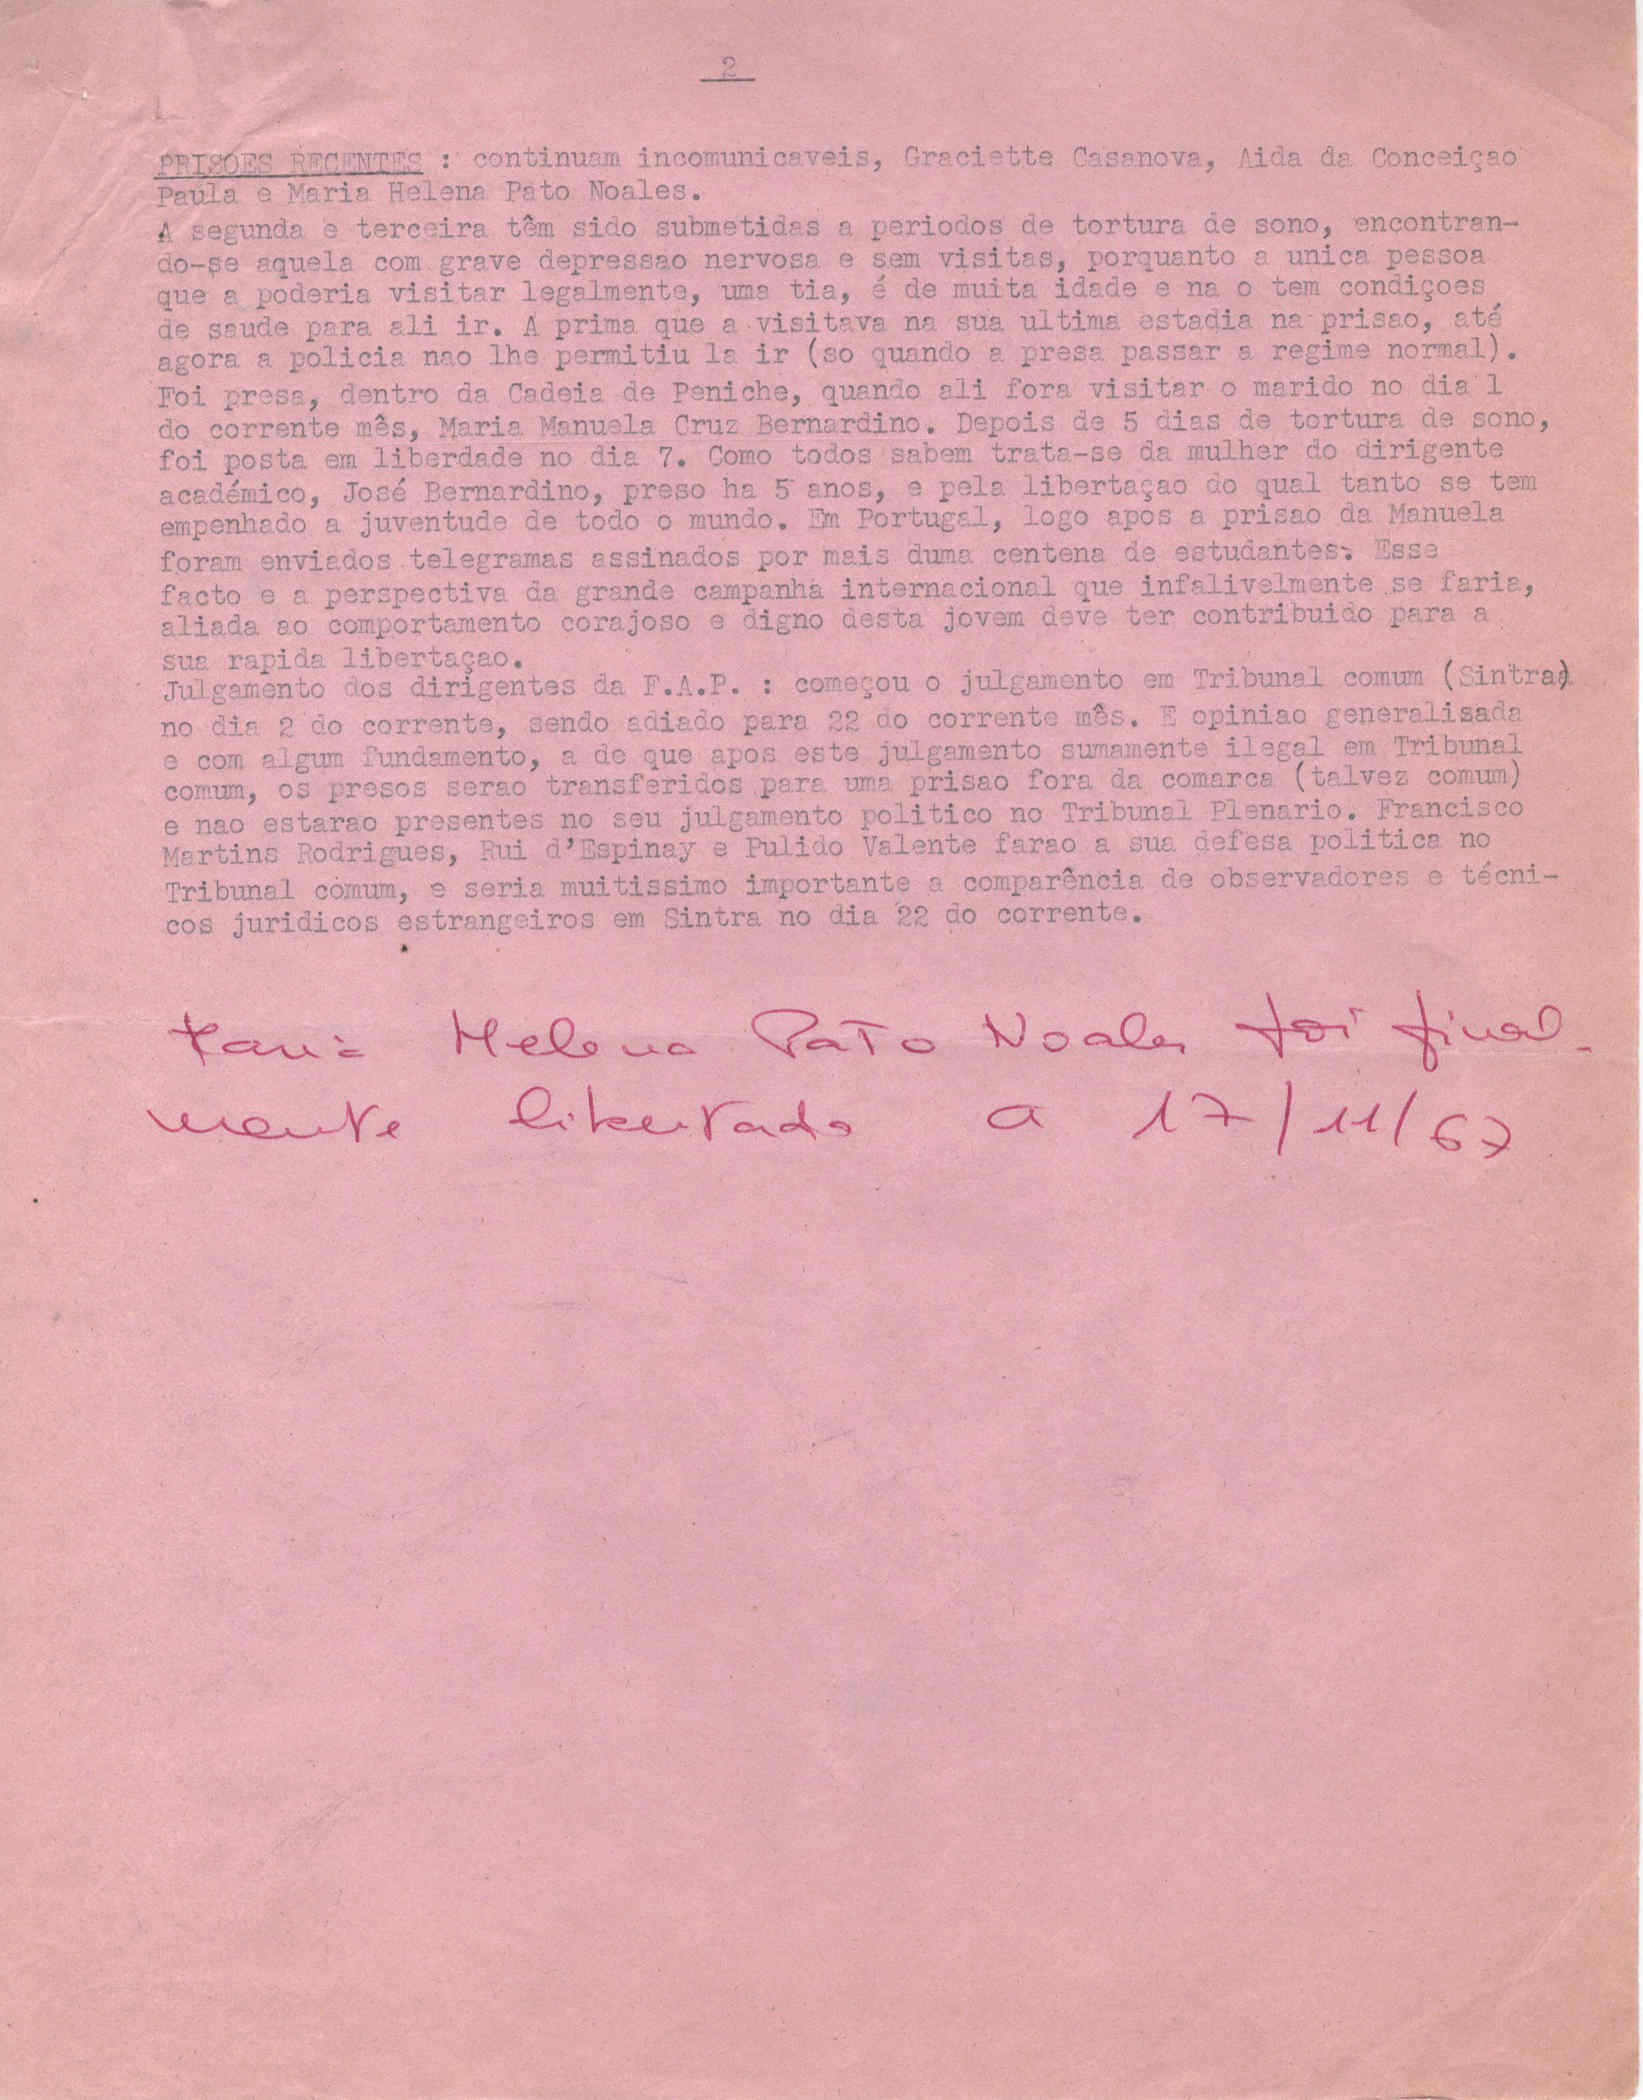 2
PRISÕES RECENTES : continuam incomunicaveis, Graciette Casanova, Aida da Conceiçao
Paula e Maria Helena Pato Noales.
A segunda e terceira têm sido submetidas a periodos de tortura de sono, encontran-
do-se aquela com grave depressao nervosa e sem visitas, porquanto a unica pessoa
que a poderia visitar legalmente, uma tia, é de muita idade e na o tem condiçoes
de saude para ali ir. A prima que a visitava na sua ultima estadia na prisao, até
agora a policia nao lhe permitiu la ir (so quando a presa passar a regime normal).
Foi presa, dentro da Cadeia de Peniche, quando ali fora visitar o marido no dia 1
do corrente mês, Maria Manuela Cruz Bernardino. Depois de 5 dias de tortura de sono,
foi posta em liberdade no dia 7. Como todos sabem trata-se da mulher do dirigente
académico, José Bernardino, preso ha 5 anos, e pela libertaçao do qual tanto se tem
empenhado a juventude de todo o mundo. Em Portugal, logo apos a prisao da Manuela
foram enviados telegramas assinados por mais duma centena de estudantes. Esse
facto e a perspectiva da grande campanha internacional que infalivelmente se faria,
aliada ao comportamento corajoso e digno desta jovem deve ter contribuido para a
sua rapida libertaçao.
Julgamento dos dirigentes da F.A.P. : começou o julgamento em Tribunal comum (Sintra)
no dia 2 do corrente, sendo adiado para 22 do corrente mês. E opiniao generalisada
e com algum fundamento, a de que apos este julgamento sumamente ilegal em Tribunal
comum, os presos serao transferidos para uma prisao fora da comarca (talvez comum)
e nao estarao presentes no seu julgamento politico no Tribunal Plenario. Francisco
Martins Rodrigues, Rui d'Espinay e Pulido Valente farao a sua defesa politica no
Tribunal comum, e seria muitissimo importante a comparência de observadores e técni-
cos juridicos estrangeiros em Sintra no dia 22 do corrente.
Maria Helena Pato Noales foi final-
mente libertada a 17/11/67